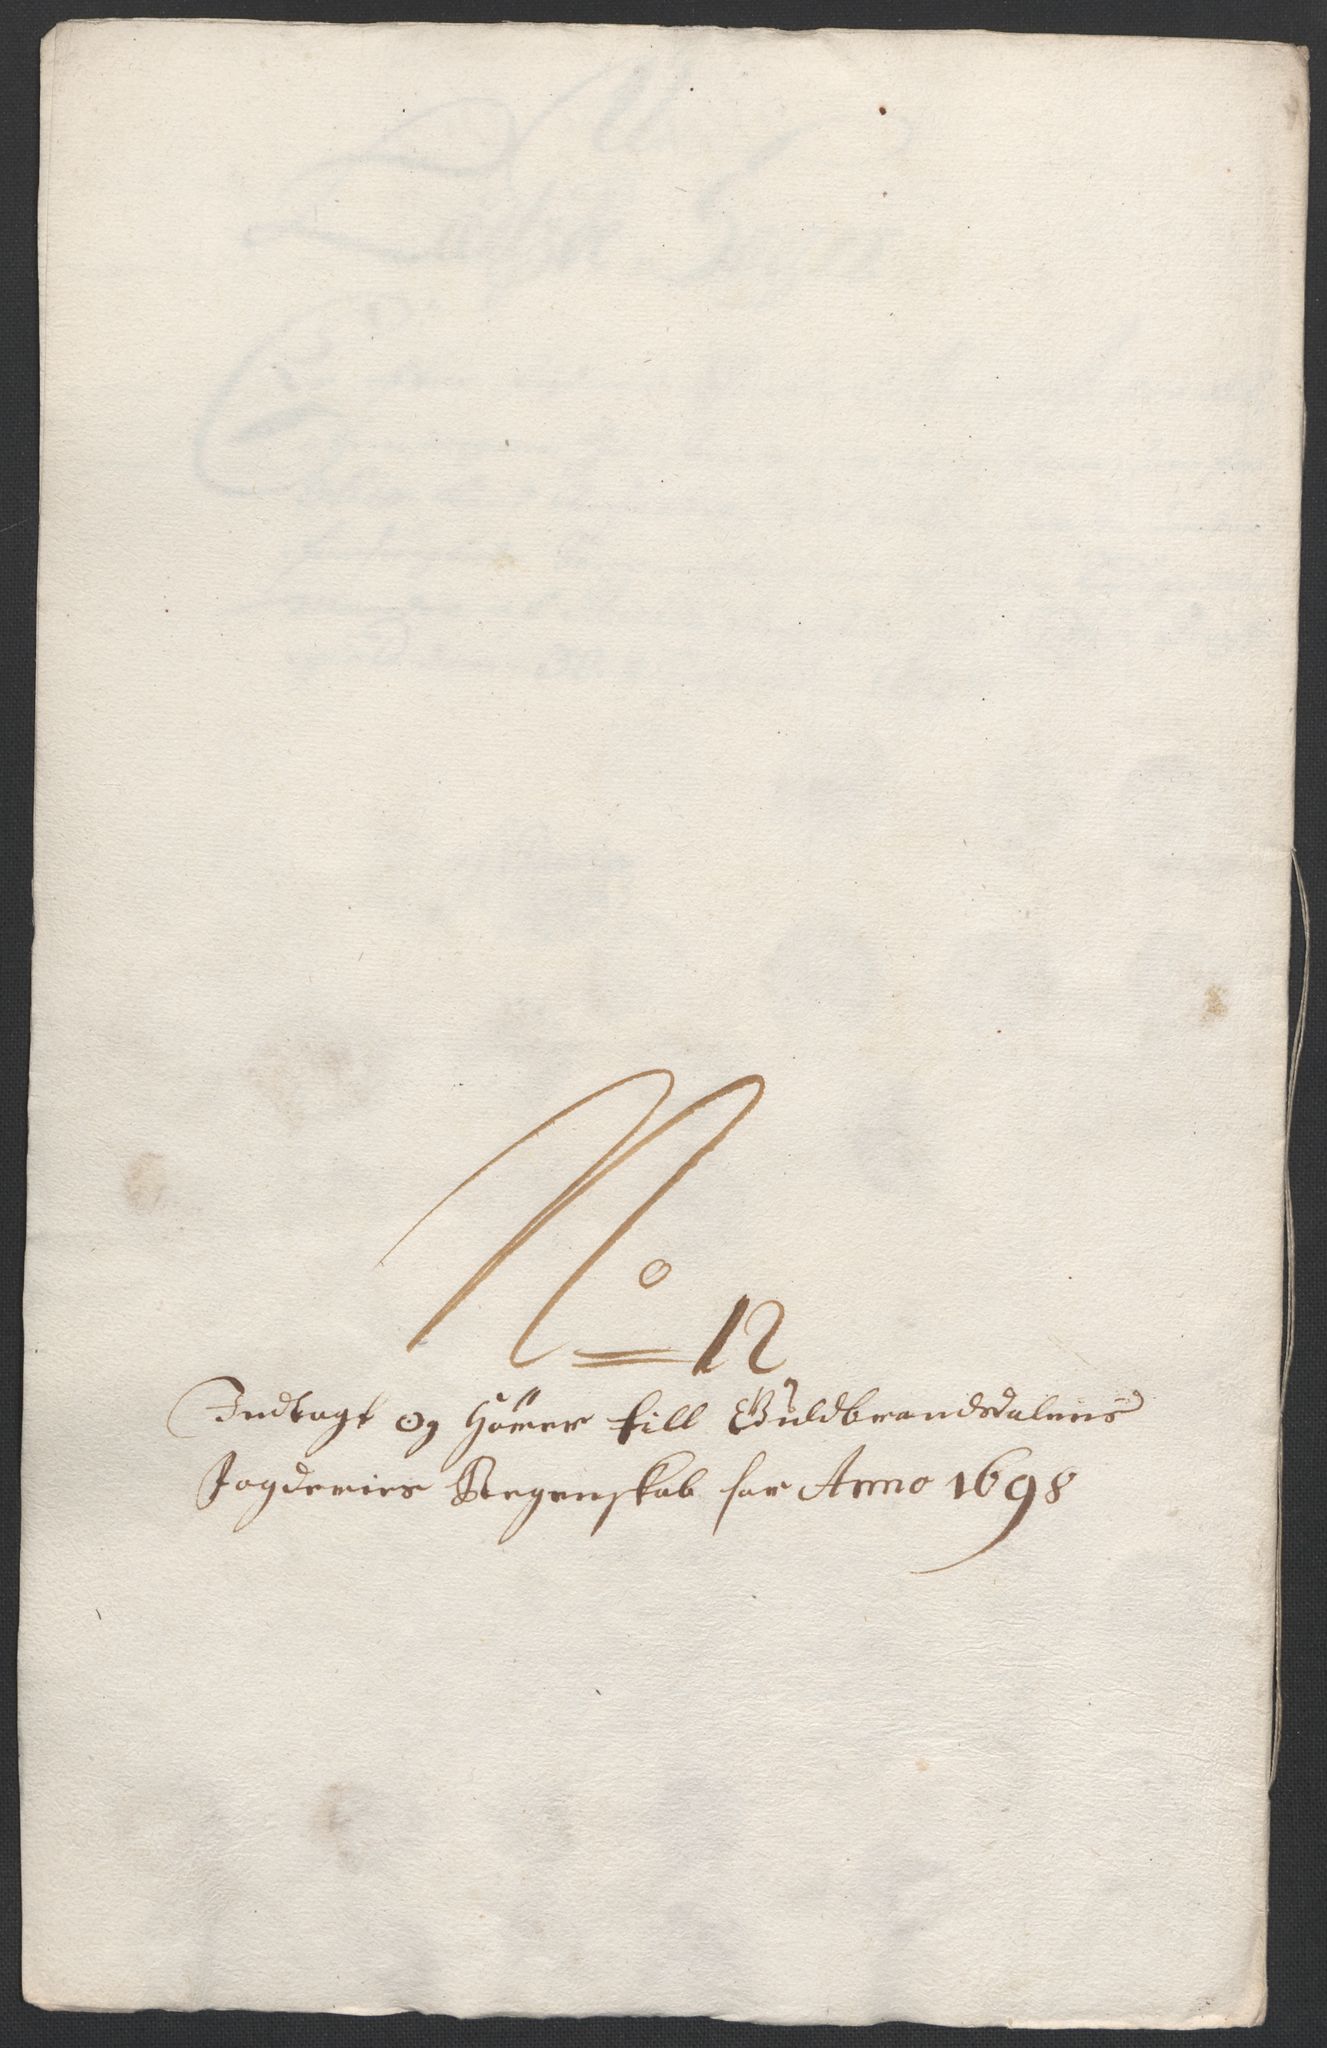 No 12
Indlagt og Hörer till Guldbrandsdalens
fogderies Regenskab for Anno 1698